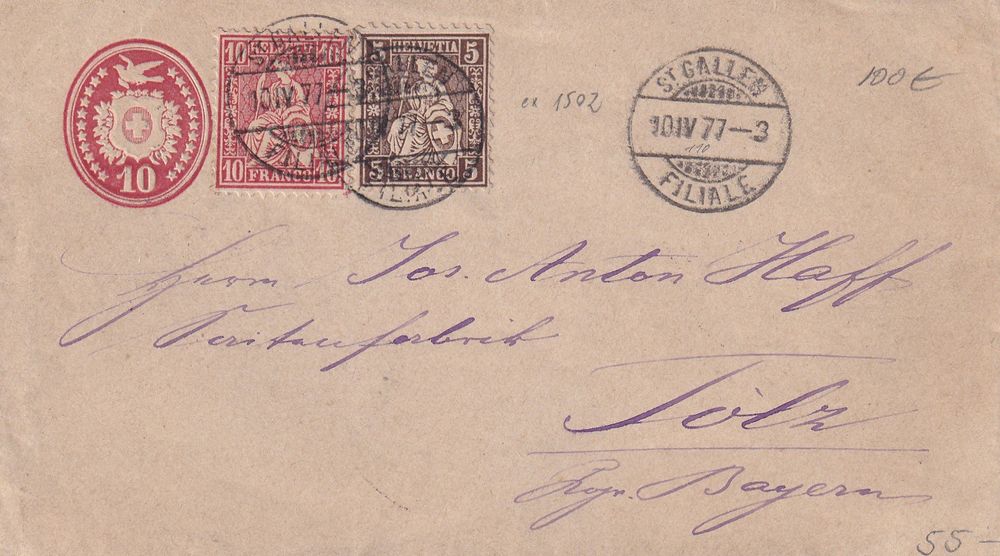 10
10 HELVETIA 10
10 FRANCO 10
5 HELVETIA 5
5 FRANCO 5
10 IV 77-3
ex 1502
ST GALLEN
10 IV 77-3
110
FILIALE
100€
Herrn Jos. Anton Haff
Tölz
Bayern
55-